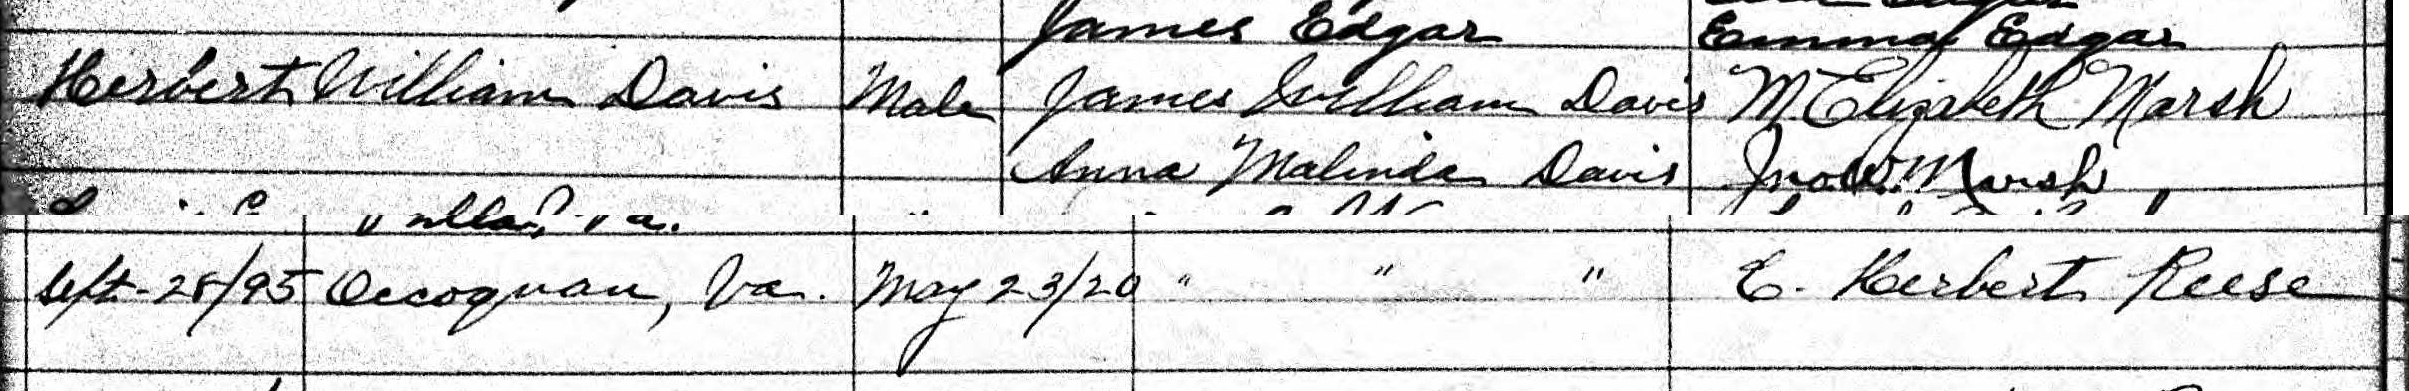 James Edgar Emma Edgar
Herbert William Davis Male James William Davis M Elizabeth Marsh
Anna Malinda Davis Jno W. Marsh
Sept-28/95 Occoquan, Va. May 23/20 " " " E. Herbert Reese